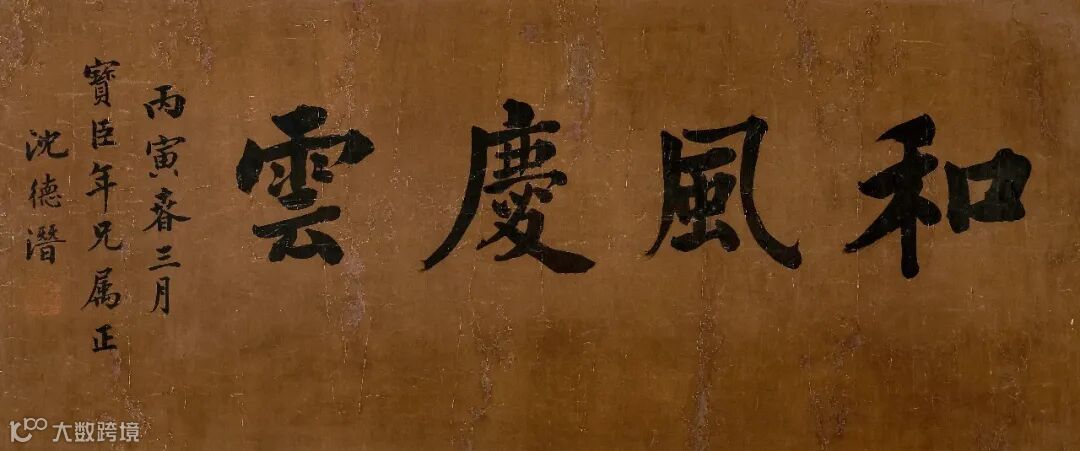 和風慶雲
丙寅春三月
寶臣年兄属正
沈德潛
大数跨境